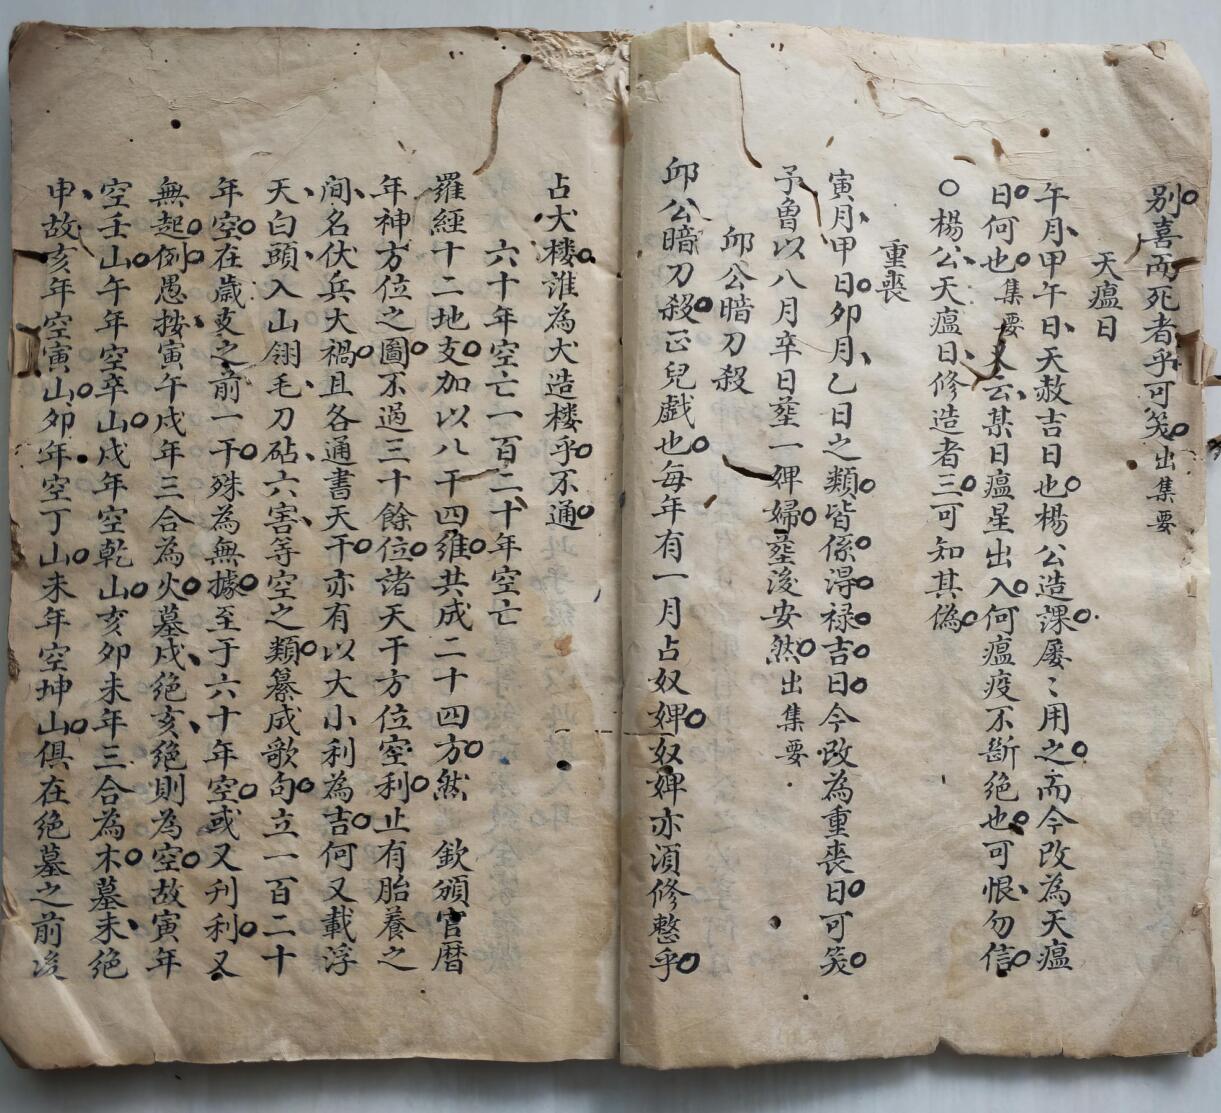 别喜兩死者乎可笑出集要
天瘟日
午月甲午日天赦吉日也楊公造課屡〻用之而今改為天瘟
日何也集要又云某日瘟星出入何瘟疫不斷絶也可恨勿信
○楊公天瘟日修造者三可知其偽
重喪
寅月甲日夘月乙日之類皆係淂禄吉日今改為重喪日可笑
予魯以八月卒日塟一婢婦塟後安然出集要
邱公暗刀殺
邱公暗刀殺正兒戲也每年有一月占奴婢奴婢亦湏修整乎
占犬楼誰為犬造楼乎不通
六十年空亡一百二十年空亡
羅經十二地支加以八干四維共成二十四方然 欽頒官曆
年神方位之圖不過三十餘位諸天干方位空利止有胎養之
間名伏兵大禍且各通書天干亦有以大小利為吉何又載浮
天白頭入山翎毛刀砧六害等空之類纂成歌句立一百二十
年空在歲支之前一干殊為無據至于六十年空或又刋利又
無起例愚按寅午戌年三合為火墓戌絶亥絶則為空故寅年
空壬山午年空卒山戌年空乾山亥卯未年三合為木墓未絶
申故亥年空寅山夘年空丁山未年空坤山俱在絶墓之前後